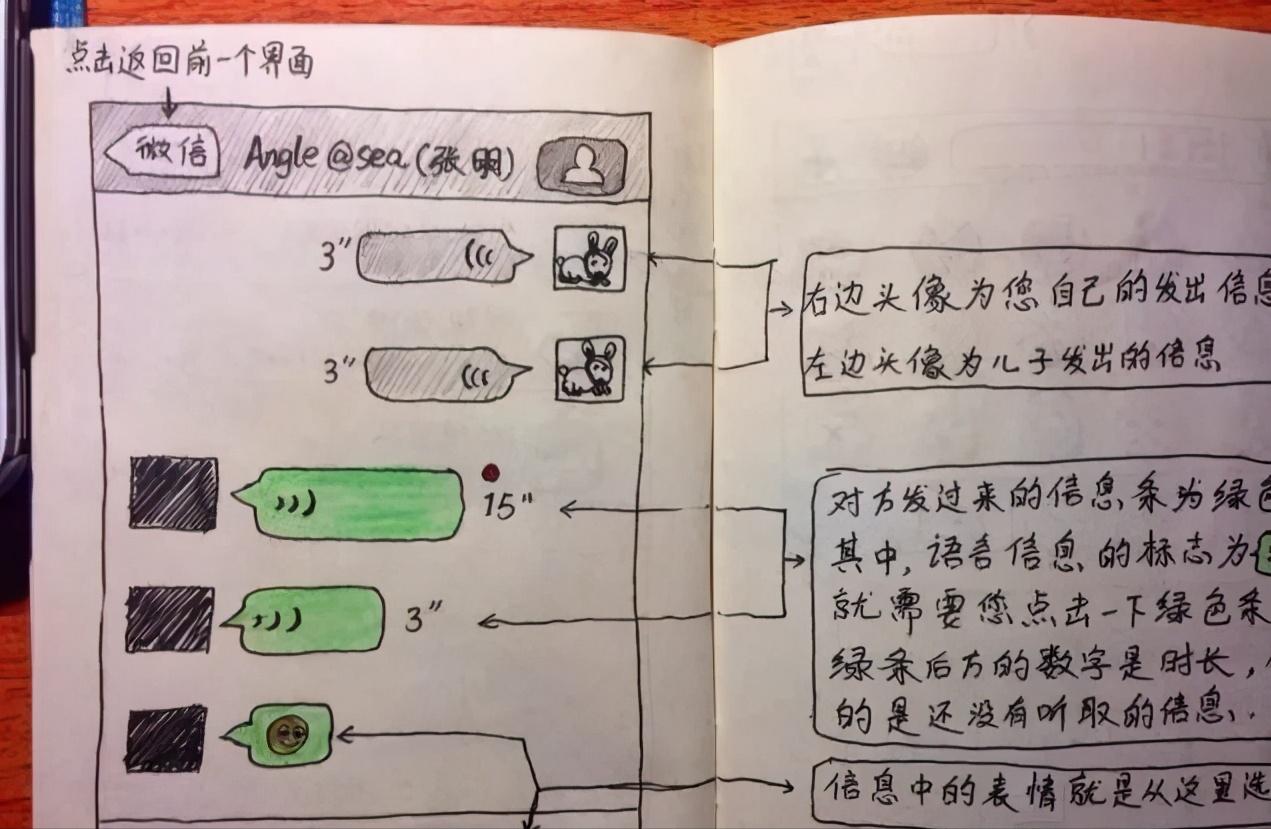 点击返回前一个界面
微信 Angle@sea(张明)
3"
3"
15"
3"
右边头像为您自己的发出信息
左边头像为儿子发出的信息
对方发过来的信息条为绿色
其中,语言信息的标志为
就需要您点击一下绿色条
绿条后方的数字是时长,
的是还没有听取的信息.
信息中的表情就是从这里选